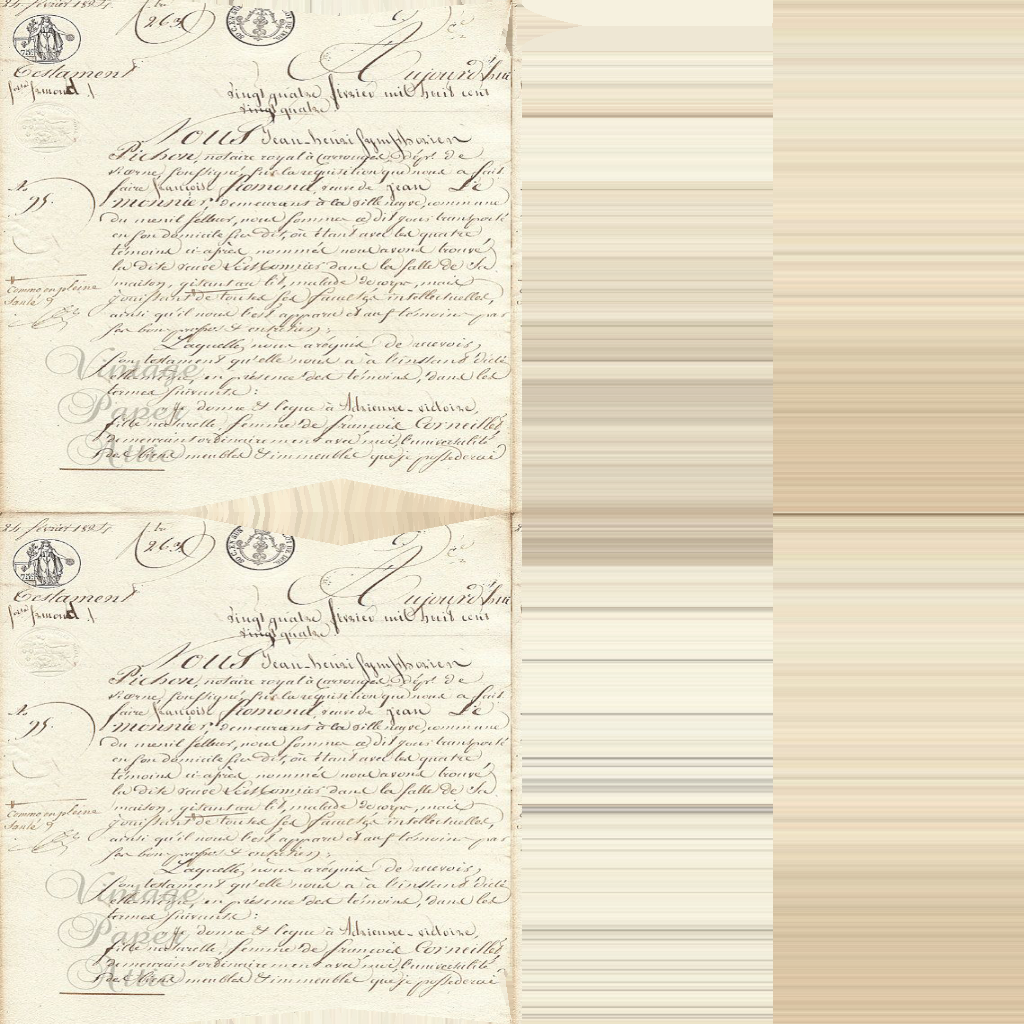 24 février 1824
263
Testament
Aujourd'hui
vingt quatre février mil huit cent
vingt quatre
Nous Jean-henri Symphorien
Pichon, notaire royal à
soussigné, sur la requisition que nous a fait
faire françoise, veuve de jean Le
monnier, demeurant à la ville neuve, commune
du menil, nous sommes transporté
en son domicile où étant avec les quatre
témoins ci-après nommés nous avons trouvé
la dite veuve LeMonnier dans la salle de sa
maison, gisant au lit, malade de corps, mais
Comme en pleine
santé
jouissant de toutes ses facultés intellectuelles,
ainsi qu'il nous est apparu et aux témoins par
ses bons propos & entretiens;
Laquelle, nous a requis de recevoir,
son testament qu'elle nous a à l'instant dicté
en présence des témoins, dans les
formes suivante:
Je donne & legue à Adrienne-victoire,
fille naturelle, femme de françois Corneilles
demeurant ordinairement avec moi, l'universalité
des biens meubles & immeubles que je possederai
Vintage
Paper
Attic
24 février 1824
263
Testament
Aujourd'hui
vingt quatre février mil huit cent
vingt quatre
Nous Jean-henri Symphorien
Pichon, notaire royal à
soussigné, sur la requisition que nous a fait
faire françoise, veuve de jean Le
monnier, demeurant à la ville neuve, commune
du menil, nous sommes transporté
en son domicile où étant avec les quatre
témoins ci-après nommés nous avons trouvé
la dite veuve LeMonnier dans la salle de sa
maison, gisant au lit, malade de corps, mais
Comme en pleine
santé
jouissant de toutes ses facultés intellectuelles,
ainsi qu'il nous est apparu et aux témoins par
ses bons propos & entretiens;
Laquelle, nous a requis de recevoir,
son testament qu'elle nous a à l'instant dicté
en présence des témoins, dans les
formes suivante:
Je donne & legue à Adrienne-victoire,
fille naturelle, femme de françois Corneilles
demeurant ordinairement avec moi, l'universalité
des biens meubles & immeubles que je possederai
Vintage
Paper
Attic